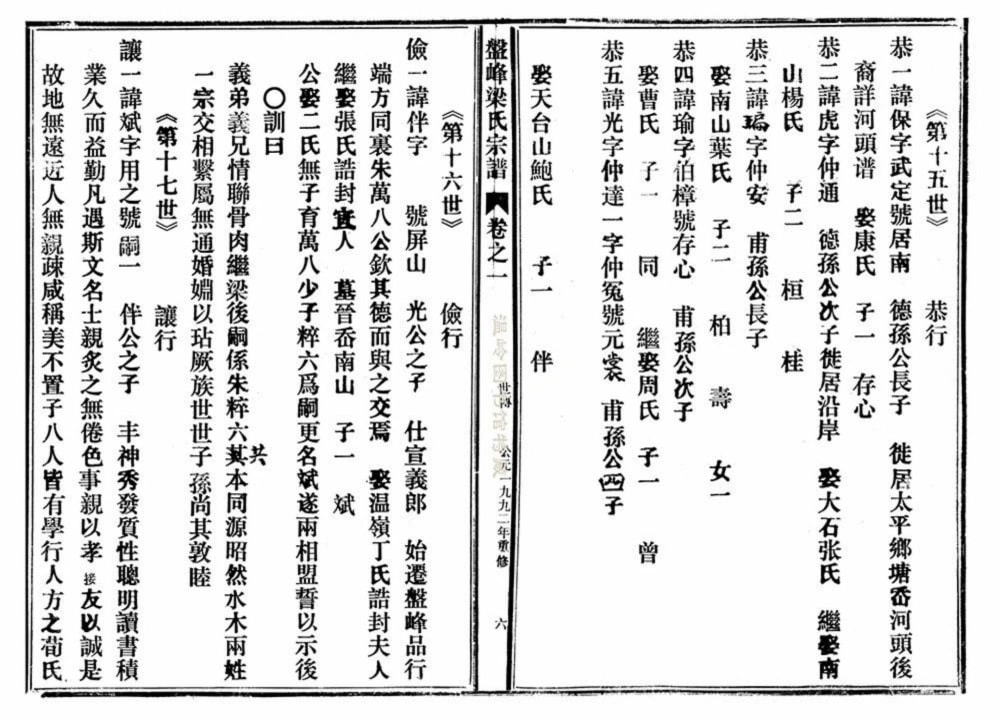 《第十五世》 恭行
恭一諱保字武定號居南 德孫公長子 徙居太平鄉塘岙河頭後
裔詳河頭谱 娶康氏 子一 存心
恭二諱虎字仲通 德孫公次子徙居沿岸 娶大石张氏 繼娶南
山楊氏 子二 桓 桂
恭三諱瑞字仲安 甫孫公長子
娶南山葉氏 子二 柏 壽 女一
恭四諱瑜字伯樟號存心 甫孫公次子
娶曹氏 子一 同 繼娶周氏 子一 曾
恭五諱光字仲達一字仲冤號元裳 甫孫公四子
娶天台山鮑氏 子一 伴
盤峰梁氏宗譜 卷之一 世傳 公元一九九二年重修 六
《第十六世》 儉行
儉一諱伴字 號屏山 光公之子 仕宣義郎 始遷盤峰品行
端方同裏朱萬八公欽其德而與之交焉 娶温嶺丁氏誥封夫人
繼娶張氏誥封宜人 墓晉岙南山 子一 斌
公娶二氏無子育萬八少子粹六爲嗣更名斌遂兩相盟誓以示後
○訓曰
義弟義兄情聯骨肉繼梁後嗣係朱粹六其本同源昭然水木兩姓
共
一宗交相繫屬無通婚婣以玷厥族世世子孫尚其敦睦
《第十七世》 讓行
讓一諱斌字用之號嗣一 伴公之子 丰神秀發質性聰明讀書積
業久而益勤凡遇斯文名士親炙之無倦色事親以孝接友以誠是
故地無遠近人無親疎咸稱美不置子八人皆有學行人方之荀氏